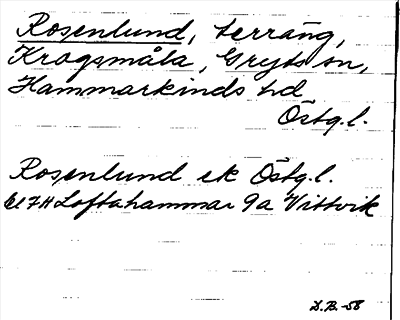 Rosenlund, terräng,
Krogsmåla, Gryts sn,
Hammarkinds hd
Östg.l.
Rosenlund ek Östg.l.
6l7H Loftahammar 9a Vittvik
D.B.-58